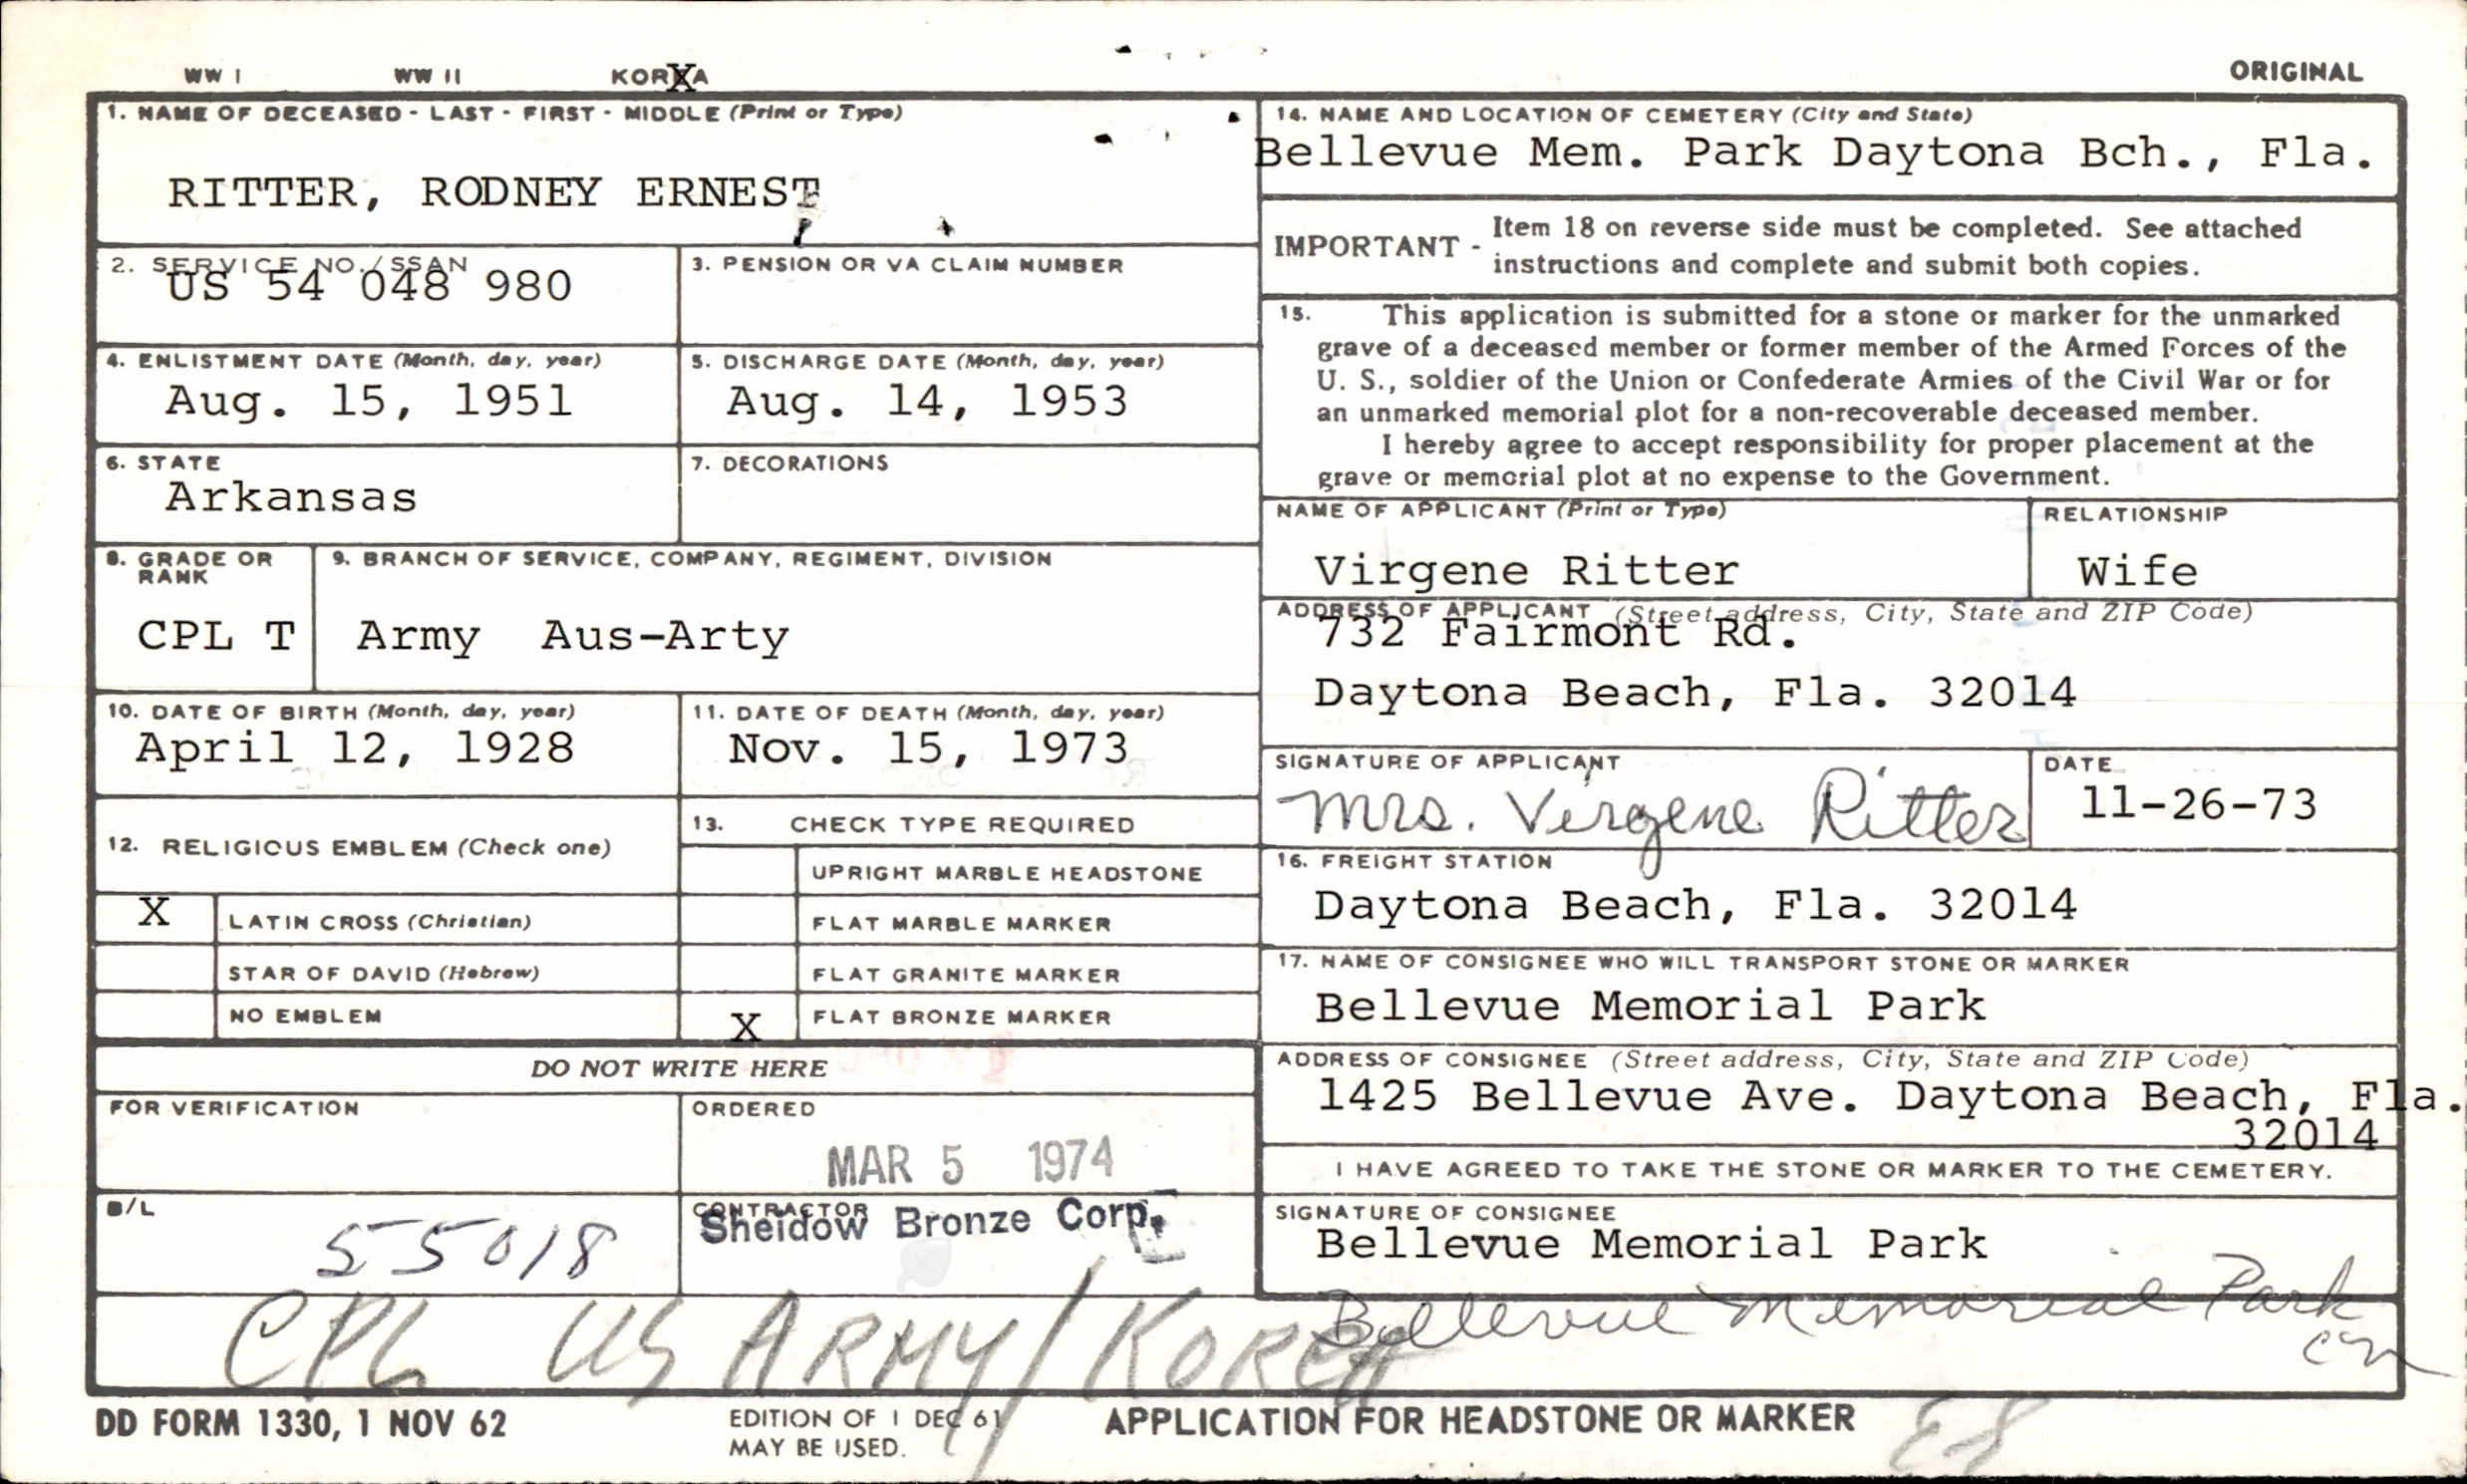 WW I WW II KOREA X
ORIGINAL
1. NAME OF DECEASED - LAST - FIRST - MIDDLE (Print or Type)
RITTER, RODNEY ERNEST
2. SERVICE NO./SSAN
US 54 048 980
3. PENSION OR VA CLAIM NUMBER
4. ENLISTMENT DATE (Month, day, year)
Aug. 15, 1951
5. DISCHARGE DATE (Month, day, year)
Aug. 14, 1953
6. STATE
Arkansas
7. DECORATIONS
8. GRADE OR
RANK
CPL T
9. BRANCH OF SERVICE, COMPANY, REGIMENT, DIVISION
Army Aus-Arty
10. DATE OF BIRTH (Month, day, year)
April 12, 1928
11. DATE OF DEATH (Month, day, year)
Nov. 15, 1973
12. RELIGIOUS EMBLEM (Check one)
X LATIN CROSS (Christian)
STAR OF DAVID (Hebrew)
NO EMBLEM
13. CHECK TYPE REQUIRED
UPRIGHT MARBLE HEADSTONE
FLAT MARBLE MARKER
FLAT GRANITE MARKER
X FLAT BRONZE MARKER
DO NOT WRITE HERE
FOR VERIFICATION
ORDERED
MAR 5 1974
B/L
55018
CONTRACTOR
Sheidow Bronze Corp.
CPL US ARMY/KOREA
14. NAME AND LOCATION OF CEMETERY (City and State)
Bellevue Mem. Park Daytona Bch., Fla.
IMPORTANT - Item 18 on reverse side must be completed. See attached
instructions and complete and submit both copies.
15. This application is submitted for a stone or marker for the unmarked
grave of a deceased member or former member of the Armed Forces of the
U. S., soldier of the Union or Confederate Armies of the Civil War or for
an unmarked memorial plot for a non-recoverable deceased member.
I hereby agree to accept responsibility for proper placement at the
grave or memorial plot at no expense to the Government.
NAME OF APPLICANT (Print or Type)
Virgene Ritter
RELATIONSHIP
Wife
ADDRESS OF APPLICANT (Street address, City, State and ZIP Code)
732 Fairmont Rd.
Daytona Beach, Fla. 32014
SIGNATURE OF APPLICANT
Mrs. Virgene Ritter
DATE
11-26-73
16. FREIGHT STATION
Daytona Beach, Fla. 32014
17. NAME OF CONSIGNEE WHO WILL TRANSPORT STONE OR MARKER
Bellevue Memorial Park
ADDRESS OF CONSIGNEE (Street address, City, State and ZIP Code)
1425 Bellevue Ave. Daytona Beach, Fla.
32014
I HAVE AGREED TO TAKE THE STONE OR MARKER TO THE CEMETERY.
SIGNATURE OF CONSIGNEE
Bellevue Memorial Park
Bellevue Memorial Park
DD FORM 1330, 1 NOV 62
EDITION OF 1 DEC 61
MAY BE USED.
APPLICATION FOR HEADSTONE OR MARKER